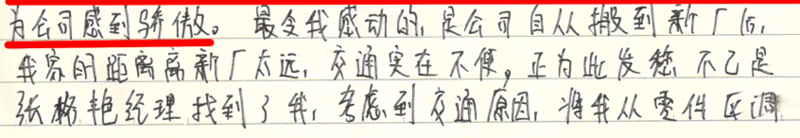 为公司感到骄傲。最令我感动的，是公司自从搬到新厂后，
我家的距离离新厂太远，交通实在不便，正为此发愁，不已是
张格艳经理找到了我，考虑到交通原因，将我从零件区调